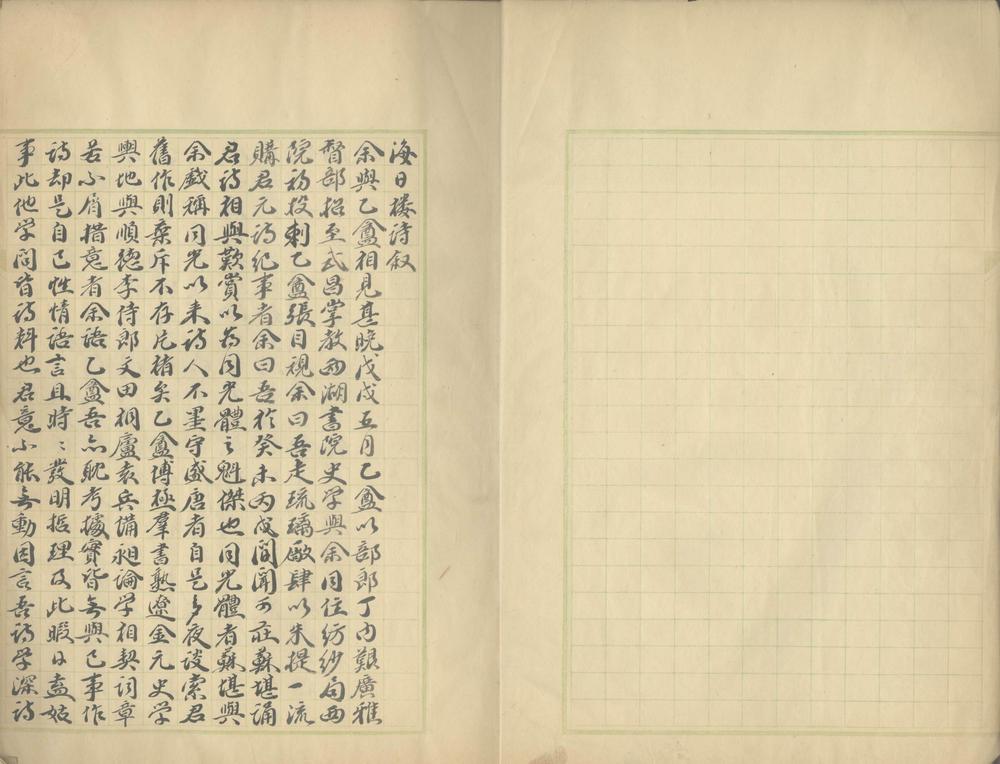 海日樓诗叙
余與乙盦相見甚晚戊戌五月乙盦以部郎丁內艱廣雅
督部招至武昌掌教兩湖書院史学與余同住紡紗局西
院初投刺乙盦張目視余曰吾走琉璃廠肆以朱提一流
購君元诗紀事者余曰吾於癸未丙戌間聞可莊蘇堪誦
君诗相與歎賞以為同光體之魁傑也同光體者蘇堪與
余戲稱同光以来诗人不墨守盛唐者自是多夜谈索君
舊作則棄斥不存片楮矣乙盦博極羣書熟遼金元史学
輿地與順德李侍郎文田桐廬袁兵備昶論学相契词章
若不屑措意者余語乙盦吾亦耽考據實皆無與己事作
诗却是自己性情語言且時〻發明哲理及此暇日盍姑
事此他学问皆诗料也君意不能無動因言吾诗学深诗